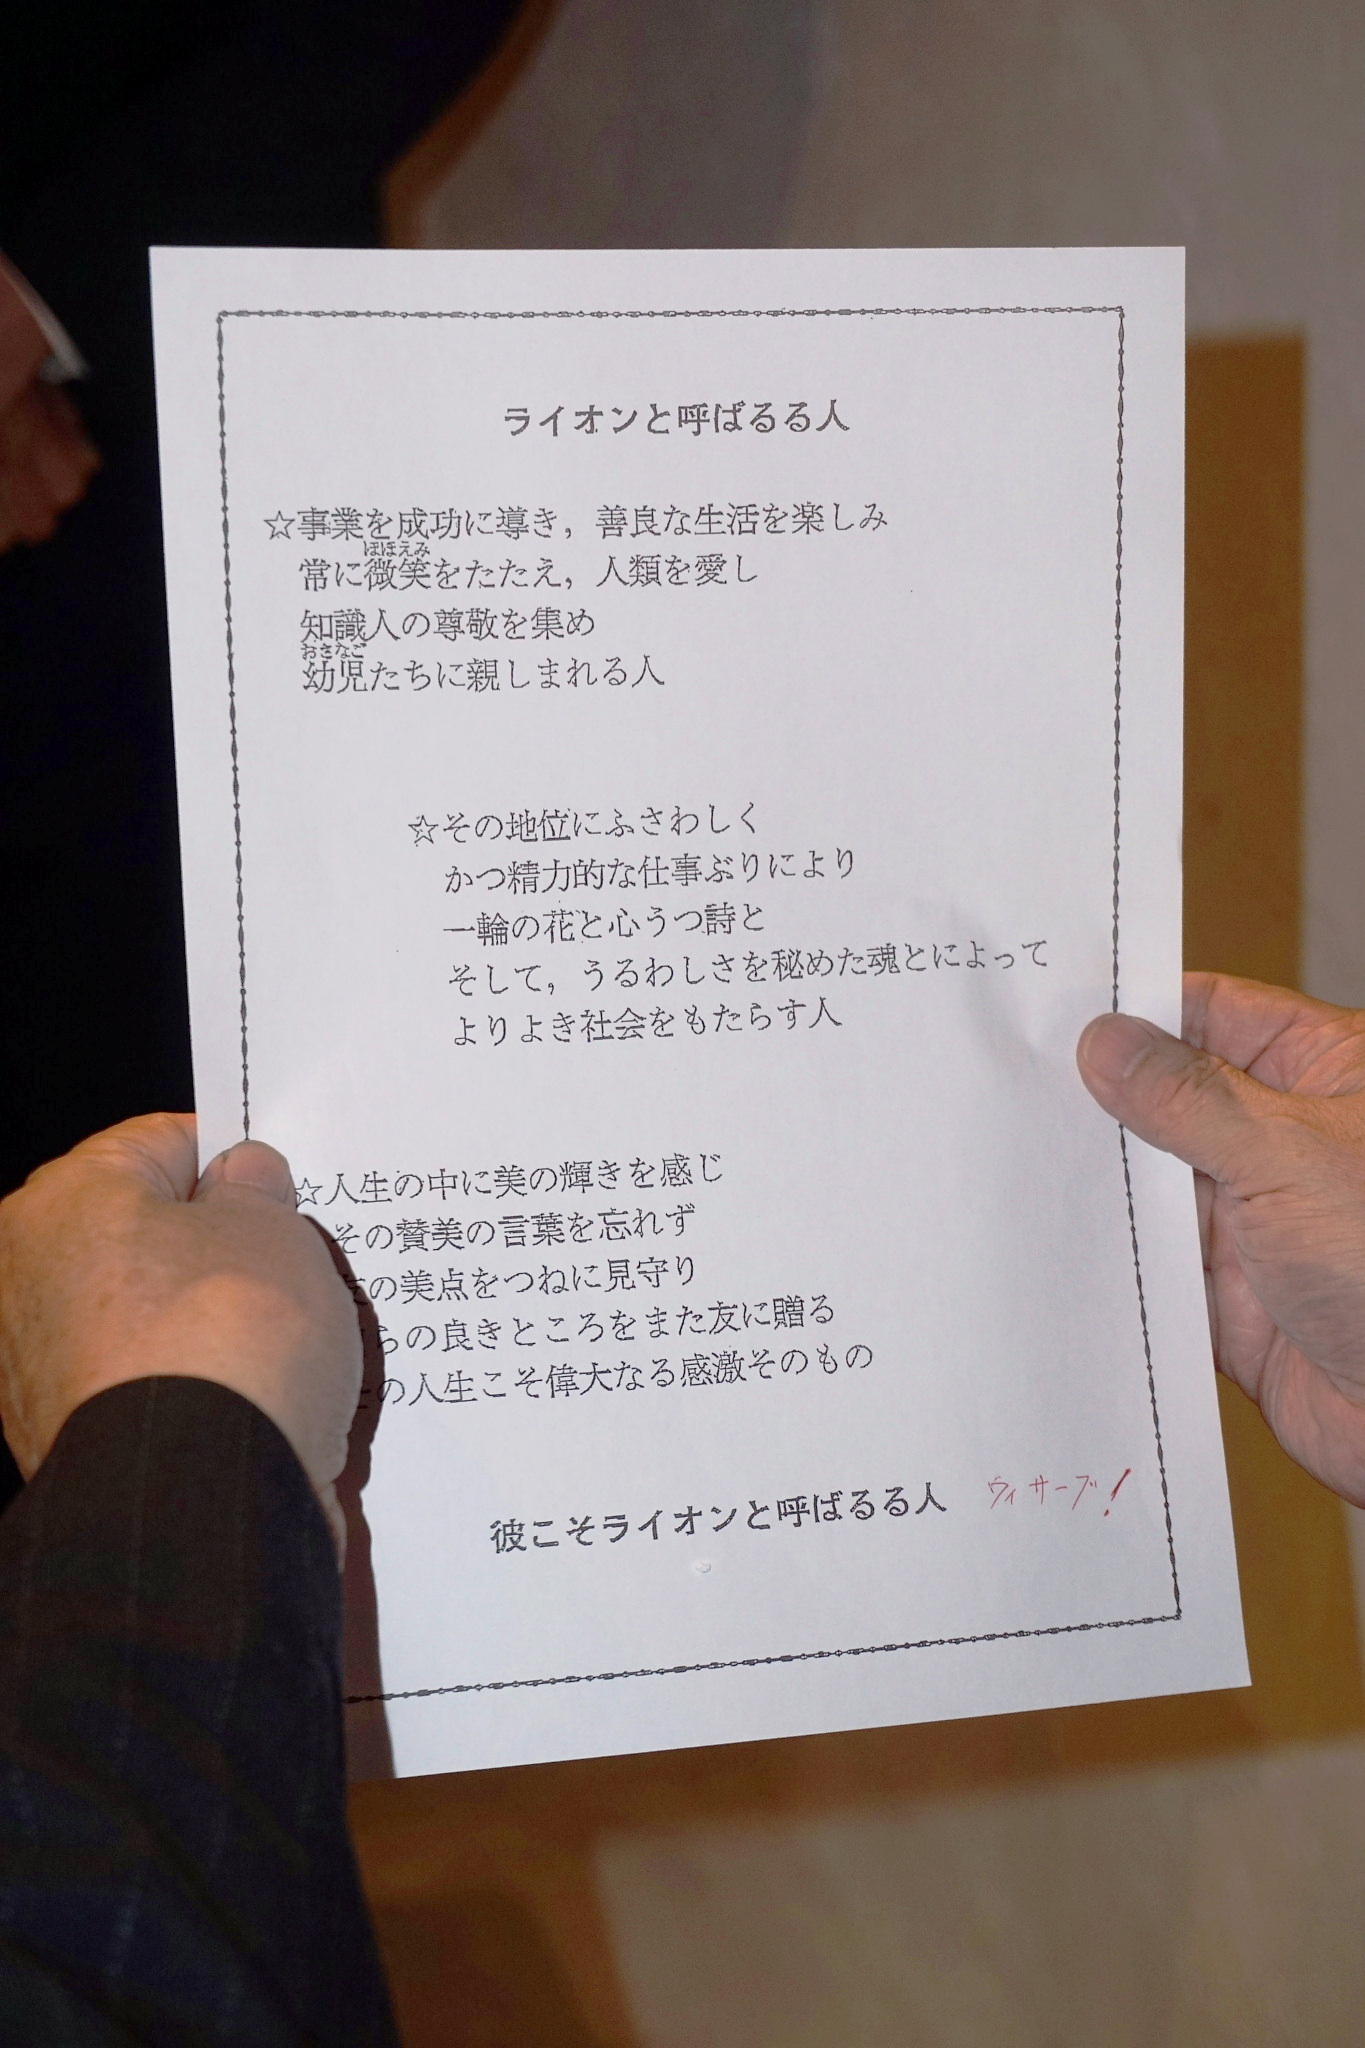 ライオンと呼ばるる人
☆事業を成功に導き，善良な生活を楽しみ
ほほえみ
常に微笑をたたえ，人類を愛し
知識人の尊敬を集め
おさなご
幼児たちに親しまれる人
☆その地位にふさわしく
かつ精力的な仕事ぶりにより
一輪の花と心うつ詩と
そして，うるわしさを秘めた魂とによって
よりよき社会をもたらす人
☆人生の中に美の輝きを感じ
その賛美の言葉を忘れず
友の美点をつねに見守り
らの良きところをまた友に贈る
の人生こそ偉大なる感激そのもの
彼こそライオンと呼ばるる人
ウィサーブ！